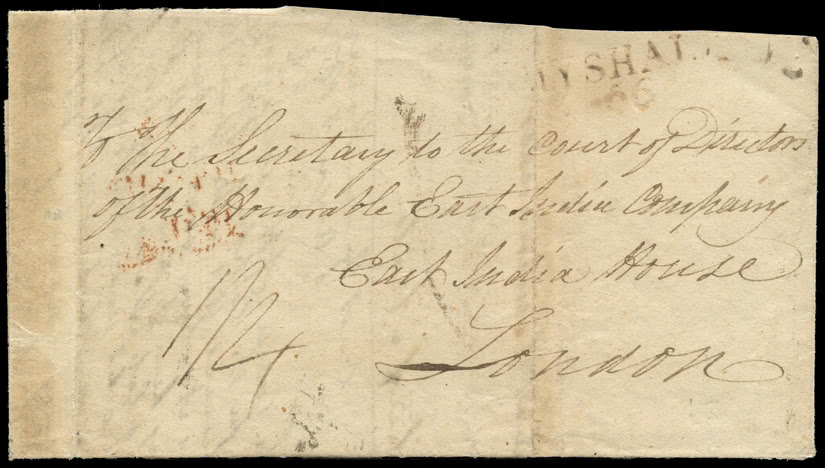 66
To The Secretary to the Court of Directors
of the Honorable East India Company
East India House
London